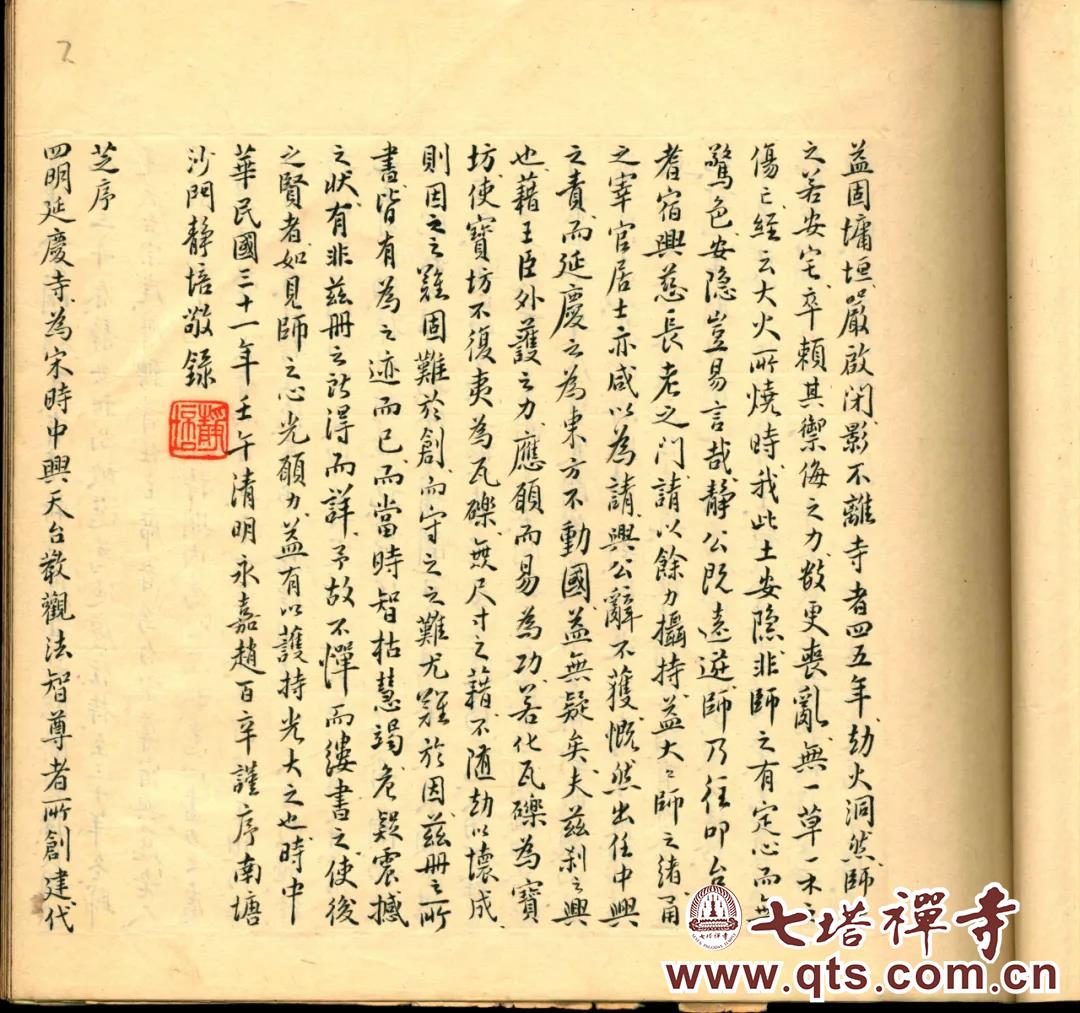 益固墉垣嚴啟閉影不離寺者四五年劫火洞然師
之若安宅卒賴其禦侮之力故更喪亂無一草一木之
傷亡經云大火所燒時我此土安隱非師之有定心而無
驚色安隱豈易言哉靜公既遠逝師乃往叩台
耆宿興慈長老之門請以餘力攝持益大大師之緒甬
之宰官居士亦咸以為請興公辭不獲慨然出任中興
之責而延慶之為東方不動國益無疑矣夫茲剎之興
也藉王臣外護之力應願而易為功若化瓦礫為寶
坊使寶坊不復夷為瓦礫無尺寸之藉不隨劫以壞成
則因之之難固難於創而守之之難尤難於因茲冊之所
書皆有為之迹而已而當時智枯慧竭危疑震撼
之狀有非茲冊之所得而詳予故不憚而縷書之使後
之賢者如見師之心光願力益有以護持光大之也時中
華民國三十一年壬午清明永嘉趙百辛謹序南塘
沙門靜培敬錄
靜培
芝序
四明延慶寺為宋時中興天台教觀法智尊者所創建代
2
七塔禪寺
SEVEN PAGODAS TEMPLE
七塔禪寺
www.qts.com.cn